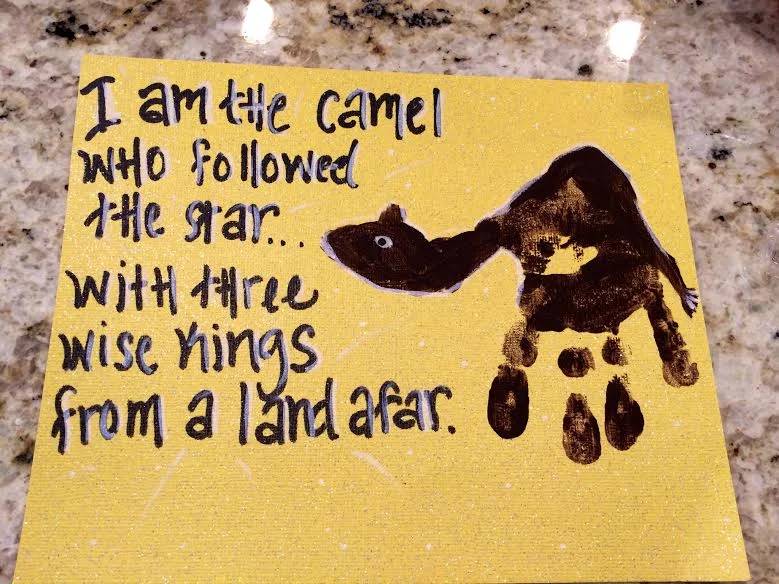 I am the camel
who followed
the star...
with three
wise kings
from a land afar.